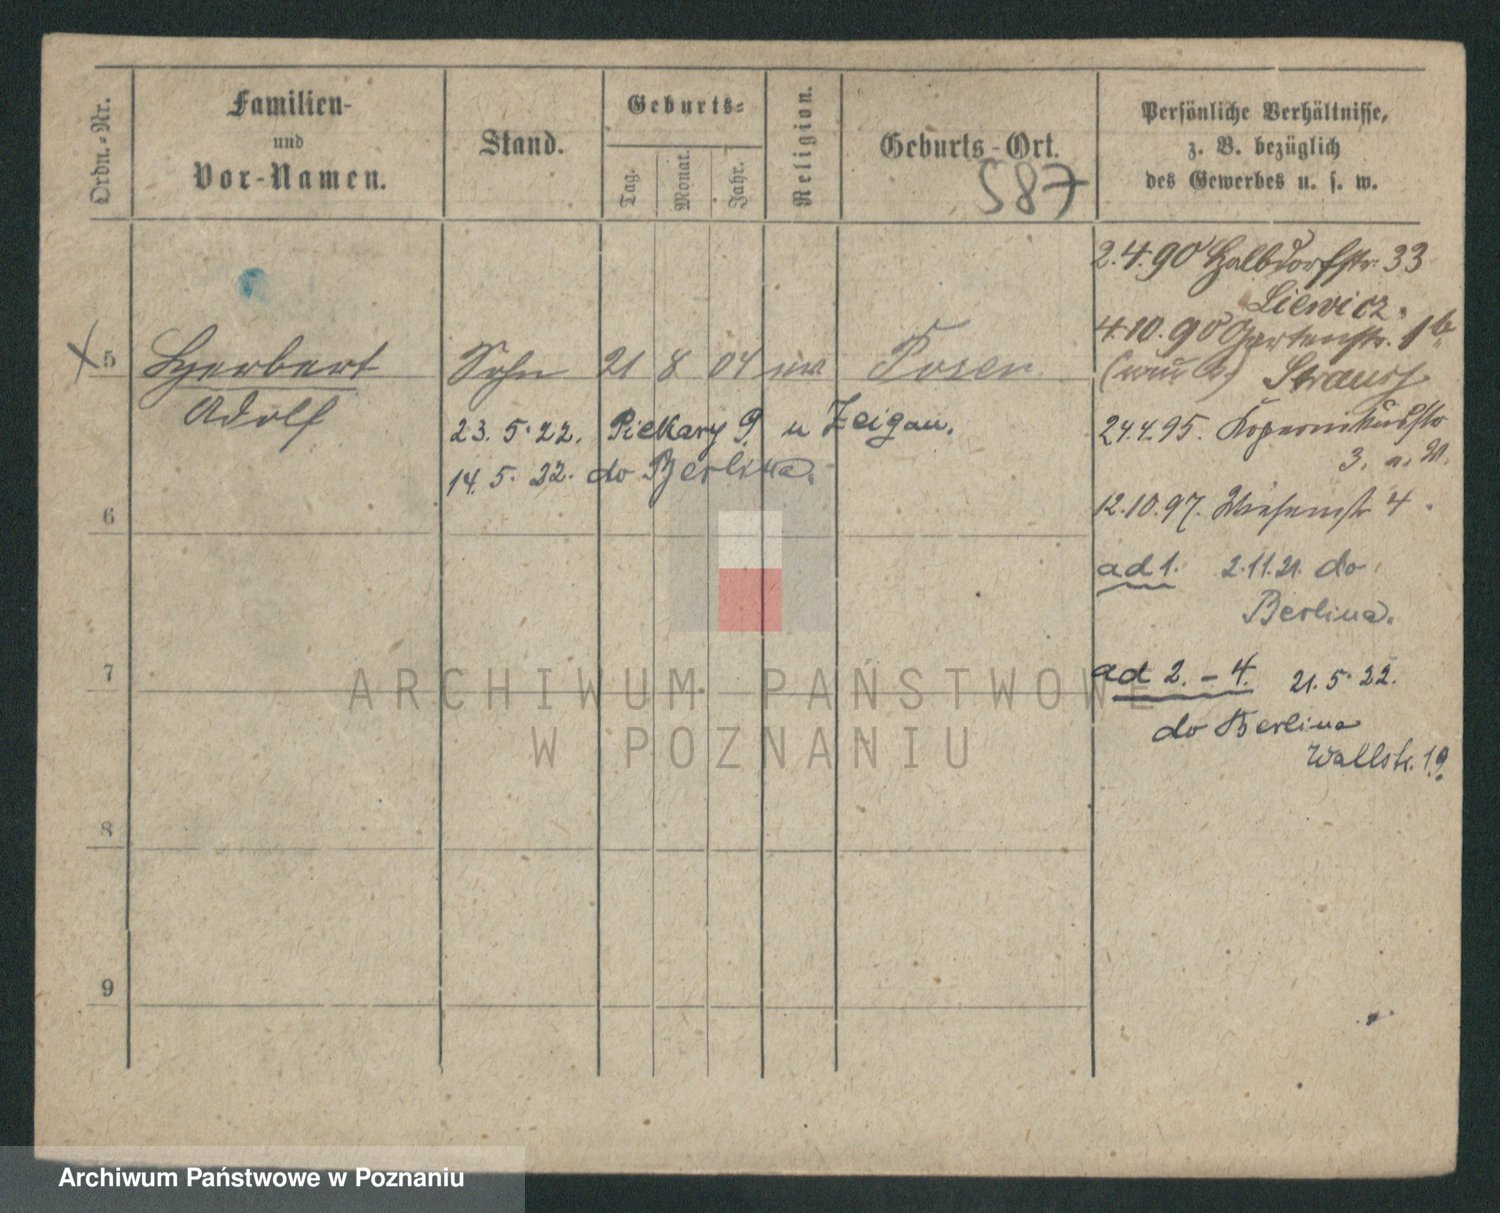 Ordn.-Nr.
Familien-
und
Vor-Namen.
Stand.
Geburts-
Tag.
Monat.
Jahr.
Religion.
Geburts-Ort.
587
Persönliche Verhältnisse,
z. B. bezüglich
des Gewerbes u. s. w.
2.4.90 Halbdorfstr. 33
Liewicz.
4.10.90 Gartenstr. 1b
Strauss
5 Herbert Sohn 21 8 04 Posen
Adolf
23. 5. 22. Piekary 9. u Zeigau.
14. 5. 22. do Berlina.
24.4.95. Kopernikusstr
3.
12.10.97. Wiesenstr 4.
6
ad 1. 2.11.21. do
Berlina.
7
ad 2. - 4. 21. 5. 22.
do Berlina
Wallstr. 19.
8
9
ARCHIWUM PAŃSTWOWE
W POZNANIU
Archiwum Państwowe w Poznaniu